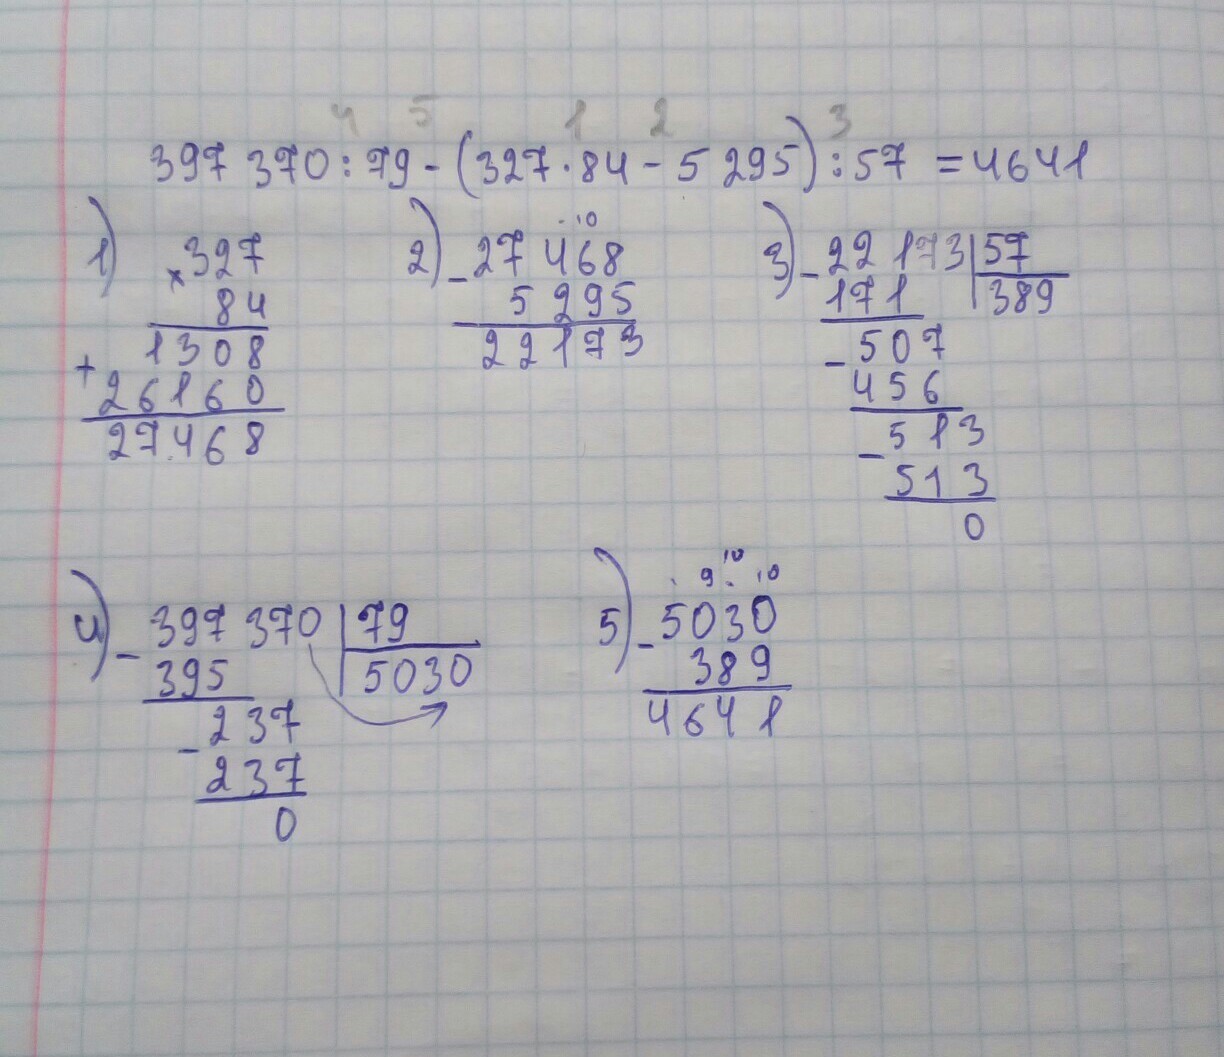 4 5 1 2 3
397 370 : 79 - (327 · 84 - 5 295) : 57 = 4641
1)
× 327
84
+ 1308
26160
27468
2)
. 10
- 27 468
5 295
22173
3)
- 22 173 | 57
171 | 389
- 507
456
- 513
513
0
4)
- 397 370 | 79
395 | 5030
- 237
237
0
5)
10
. 9 . 10
- 5030
389
4641